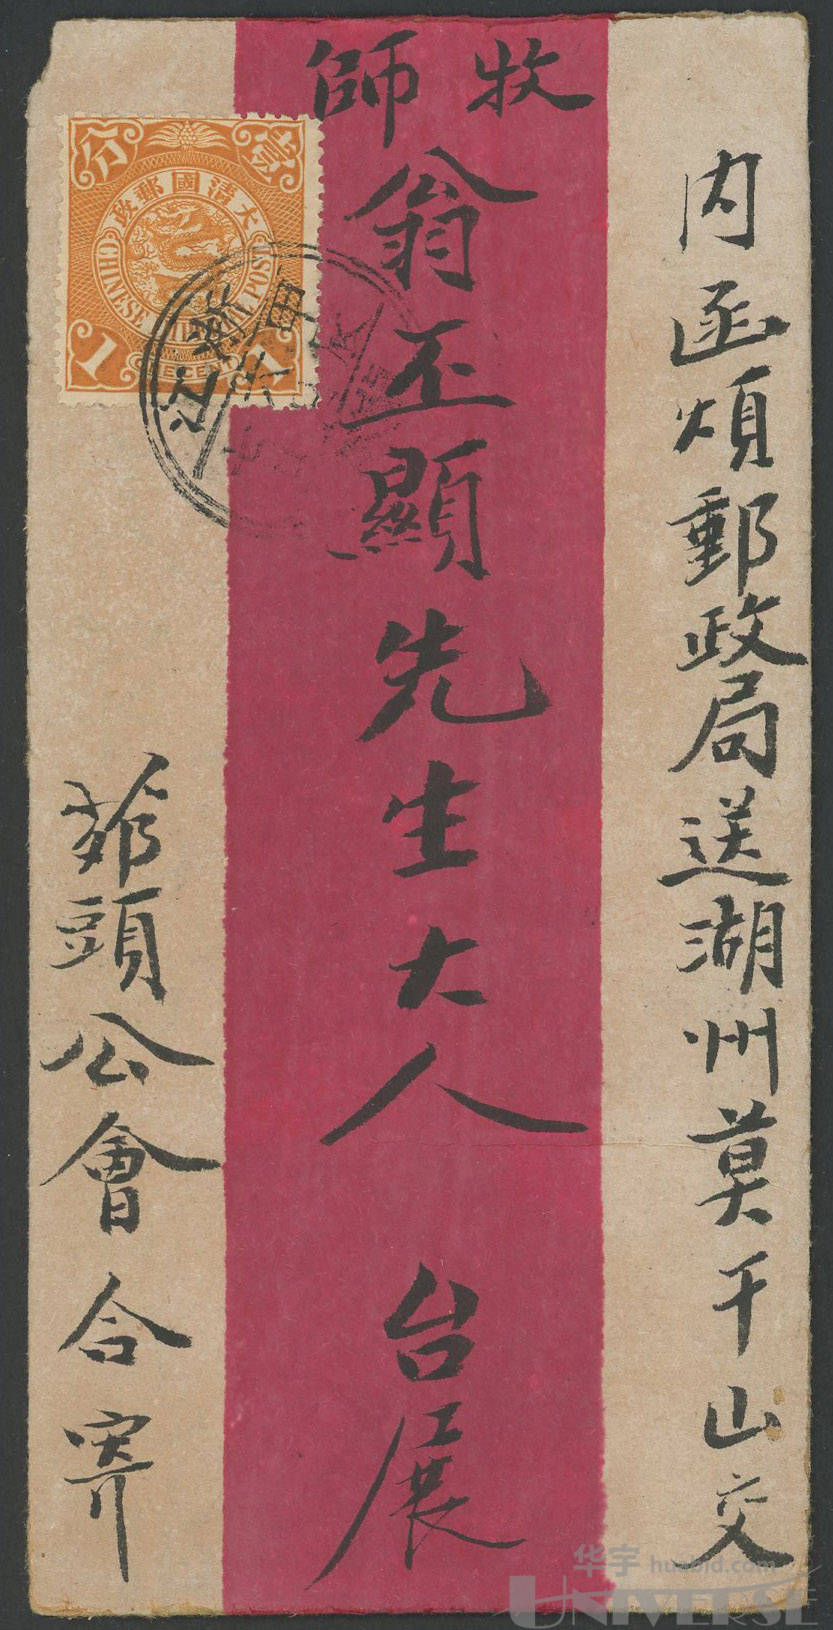 内函煩郵政局送湖州莫干山交
牧師
翁丕顯先生大人 台展
頭公會合寄
大清國郵政
壹分
CHINESE
1 1
浙江
华宇 huabid.com
UNIVERSE